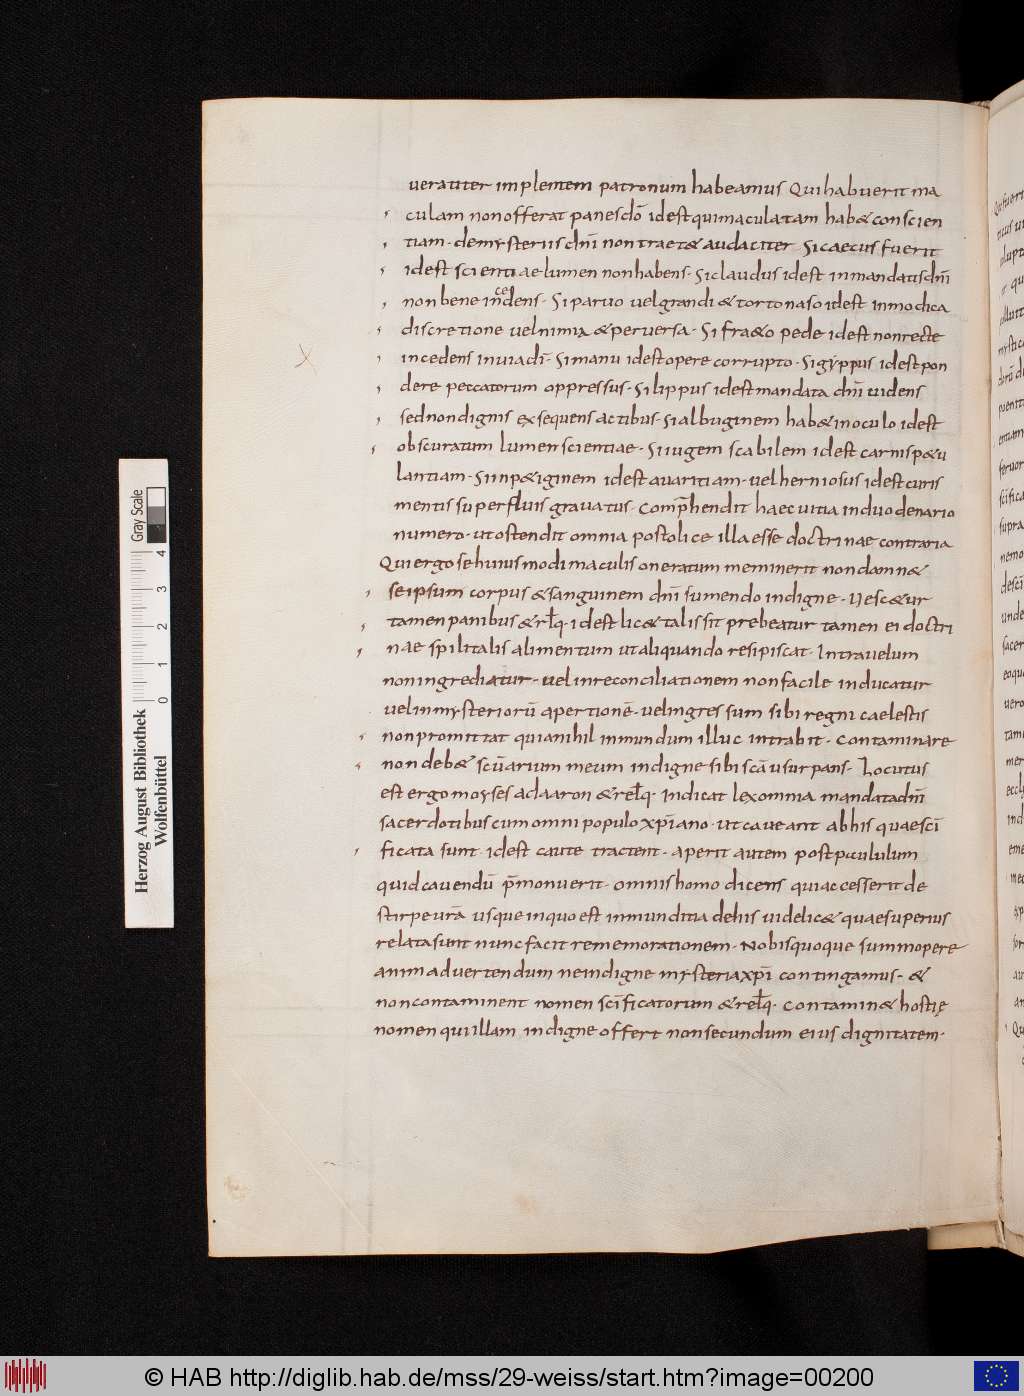 ueraciter implentem patronum habeamus Qui habuerit ma
culam non offerat panes dō id est qui maculatam hab& conscien
tiam· de mysteriis dn̄i non tract& audaciter Si caecus fuerit
id est scientiae lumen non habens· Si claudus id est in mandatis dn̄i
non bene incedens· Si paruo uel grandi & torto naso id est inmodica
discretione uel nimia & peruersa· Si fracto pede id est non recte
incedens in uia dī· Si manu id est opere corrupto· Si gyppus id est pon
dere peccatorum oppressus· Si lippus id est mandata dn̄i uidens
sed non dignis exsequens actibus· Si albuginem hab& in oculo id est
obscuratum lumen scientiae· Si iugem scabilem id est carnis p&u
lantiam· Si inp&iginem id est auaritiam· uel herniosus id est curis
mentis superfluis grauatus· Comp̄hendit haec uitia in duodenario
numero· ut ostendit omnia postolice illa esse doctrinae contraria
Qui ergo se huiusmodi maculis oneratum meminerit non damn&
se ipsum corpus & sanguinem dn̄i sumendo indigne· Vesc&ur
tamen panibus & rł̄q· id est lic& talis sit prebeatur tamen ei doctri
nae spilitalis alimentum ut aliquando resipiscat· Intra uelum
non ingrediatur· uel in reconciliationem non facile inducatur
uel in mysteriorū apertionē· uel ingressum sibi regni caelestis
non promittat quia nihil inmundum illuc intrabit· Contaminare
non deb& scūarium meum indigne sibi scā usurpans· Locutus
est ergo moyses ad aaron & rel̄q· Indicat lex omnia mandata dn̄i
sacerdotibus cum omni populo xp̄iano· ut caueant ab his quae scī
ficata sunt id est caute tractent· aperit autem post piululum
quid cauendū p̄monuerit· omnis homo dicens qui accesserit de
stirpe urā usque in quo est inmunditia de his uidelic& quae superius
relata sunt nunc facit rememorationem· Nobis quoque summopere
animaduertendum ne indigne mysteria xp̄i contingamus· &
non contaminent nomen scīficatorum & rel̄q· Contamin& hostię
nomen qui illam indigne offert non secundum eius dignitatem·
Herzog August Bibliothek
Wolfenbüttel
0 1 2 3 4
Gray Scale
© HAB http://diglib.hab.de/mss/29-weiss/start.htm?image=00200